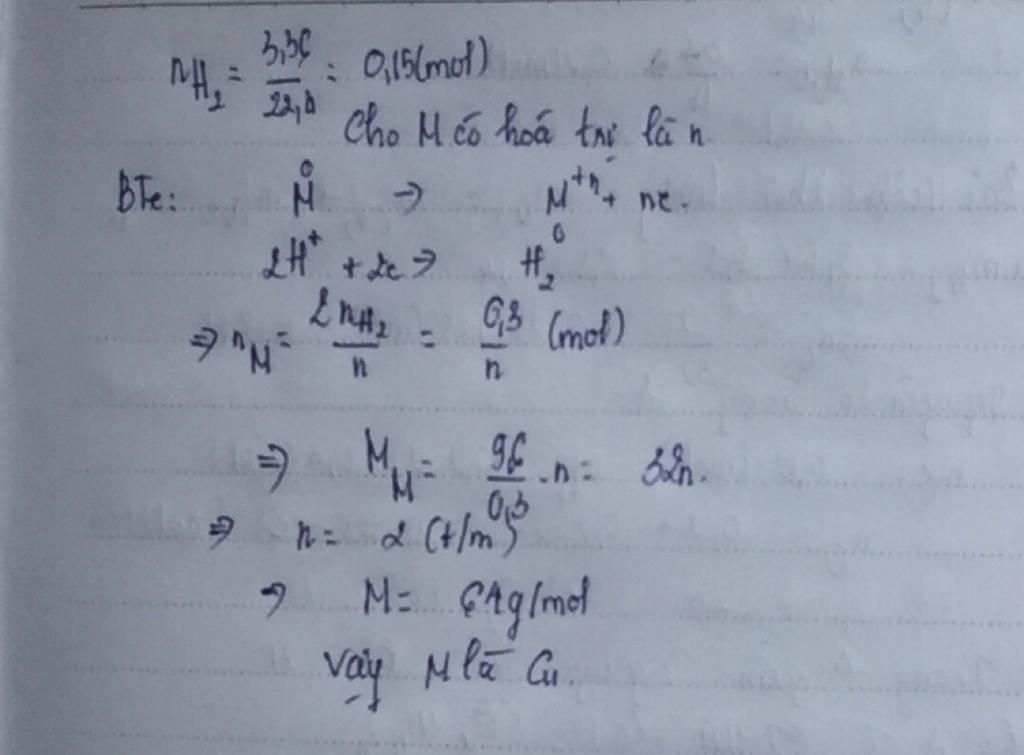 nH₂ = 3,36/22,4 = 0,15(mol)
Cho M có hoá trị là n.
BTe: M⁰ ⇒ M⁺ⁿ + ne.
2H⁺ + 2e ⇒ H₂⁰
⇒ n_M = 2nH₂/n = 0,3/n (mol)
⇒ M_M = 9,6/0,3 . n = 32n.
⇒ n = 2 (t/m)
⇒ M = 64g/mol
Vậy M là Cu.